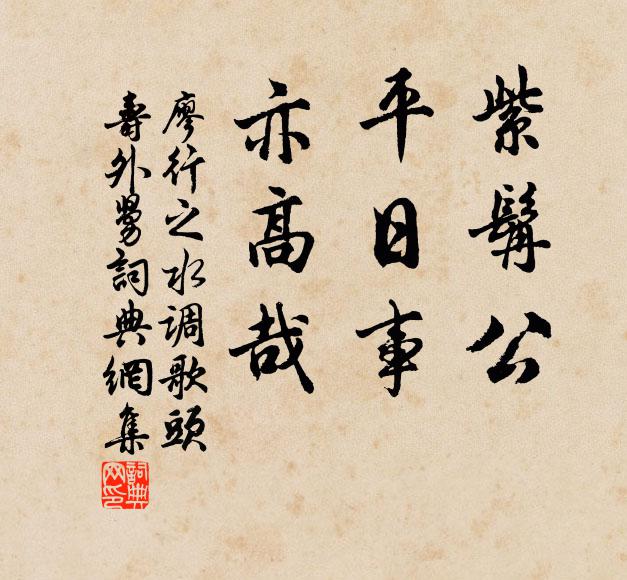 紫髯公
平日事
亦高哉
廖行之水調歌頭
壽外舅詞典網集
詞典
网印